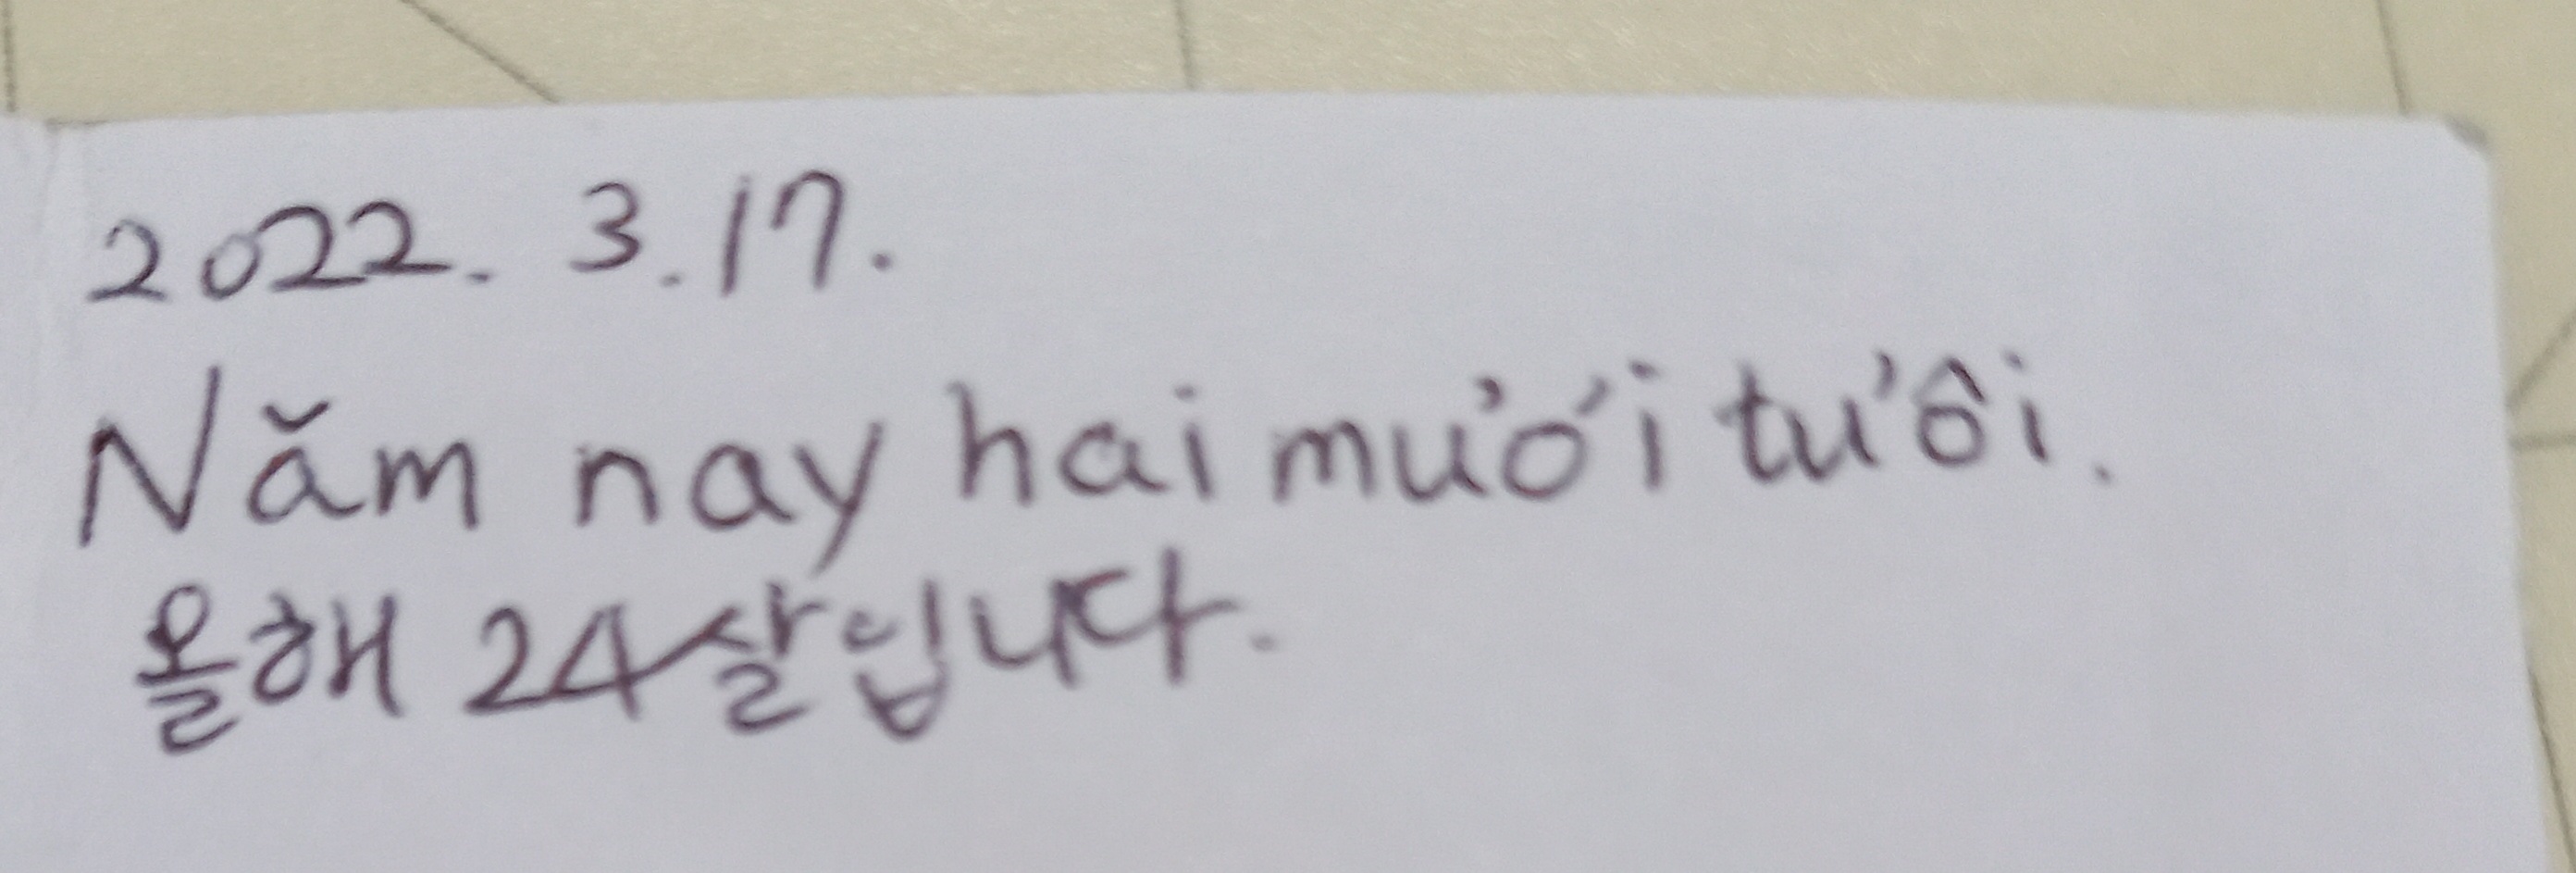 2022. 3. 17.
Năm nay hai mưới tưôi.
올해 24살입니다.